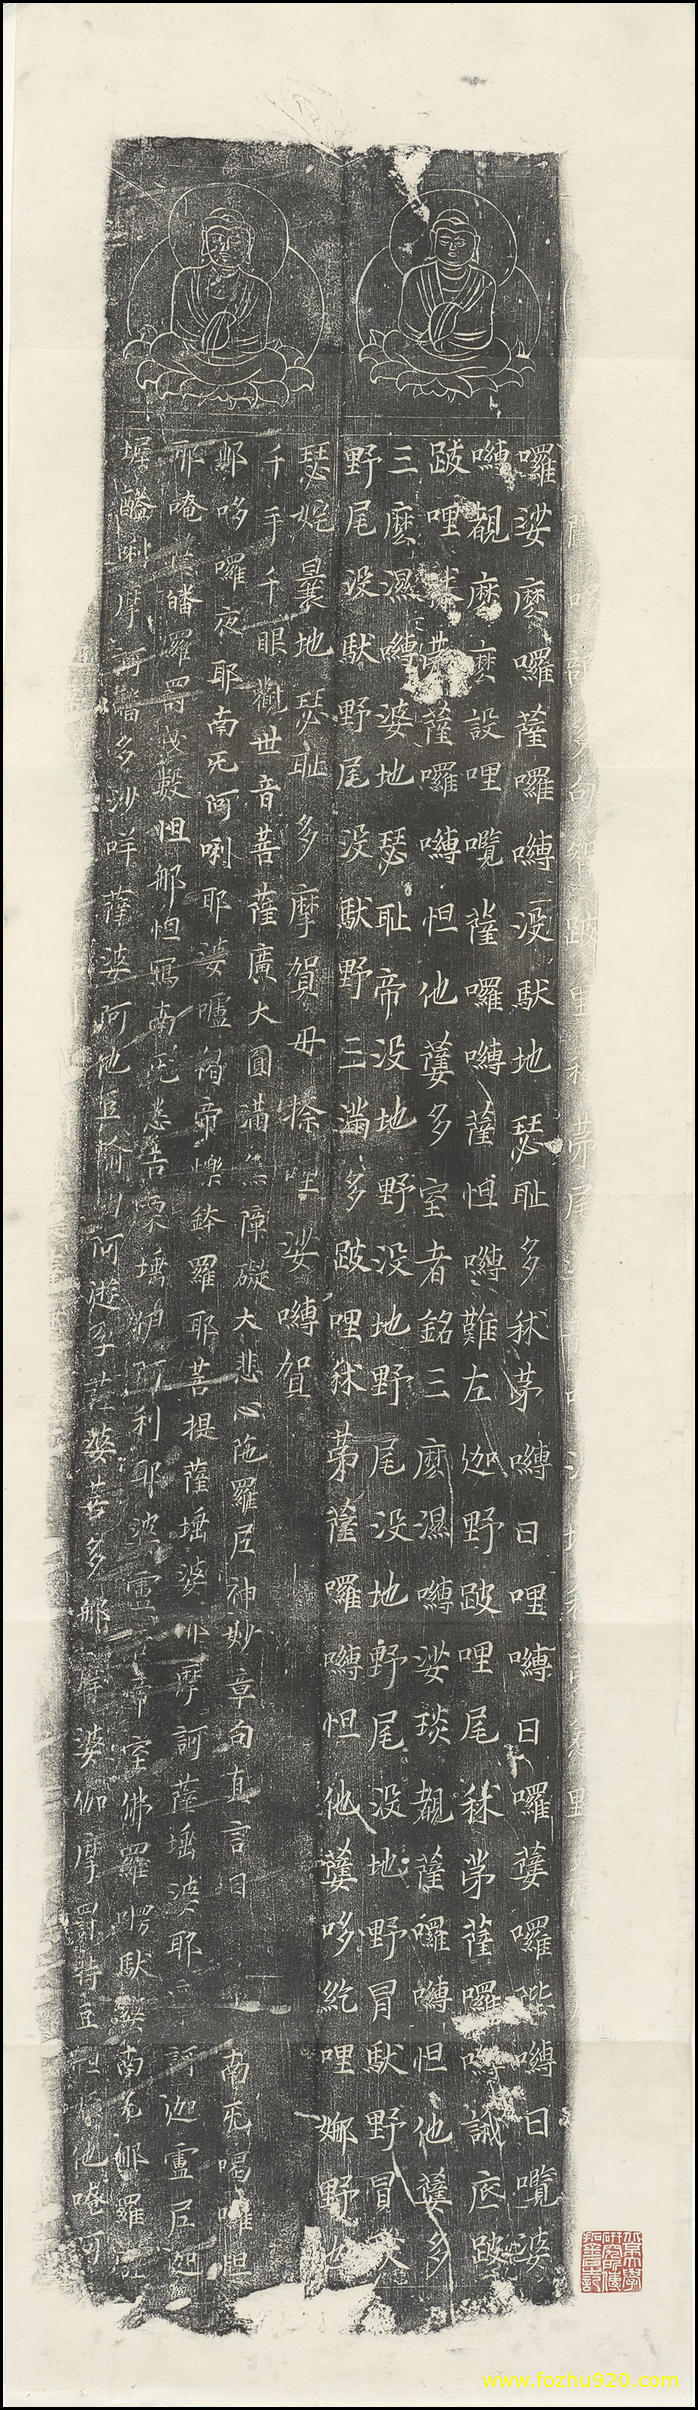 囉娑麽囉薩囉嚩没馱地瑟耻多秫苐嚩日哩嚩日囉蘖囉陛嚩日㘕婆
嚩覩麽麽設哩㘕薩囉嚩薩怛嚩難左迦野跛哩尾秫苐薩囉嚩誐底跛
跋哩秫苐薩囉嚩怛他蘖多室者銘三麽濕嚩娑琰覩薩囉嚩怛他蘖多
三麽濕嚩娑地瑟耻帝没地野没地野尾没地野尾没地野冒馱野冒
野尾没馱野尾没馱野三滿多跛哩秫苐薩囉嚩怛他蘖哆紇哩娜野
瑟姹曩地瑟耻多摩賀毋捺哩娑嚩賀
千手千眼觀世音菩薩廣大圓滿無障礙大悲心陁羅尼神妙章句真言曰 南无喝囉怛
那哆囉夜耶南无阿唎耶婆嚧羯帝爍鉢羅耶菩提薩埵婆耶摩訶薩埵婆耶摩訶迦盧尼迦
耶唵薩皤羅罰曳數怛那怛寫南无悉吉栗埵伊阿利耶婆盧吉帝室佛羅愣馱婆南无那羅
墀醯唎摩訶皤多沙咩薩婆阿他豆輸朋阿遊孕薩婆菩多那摩婆伽摩罰特豆怛姪他唵阿
北京大學研究所藏拓金石記
www.fozhu920.com